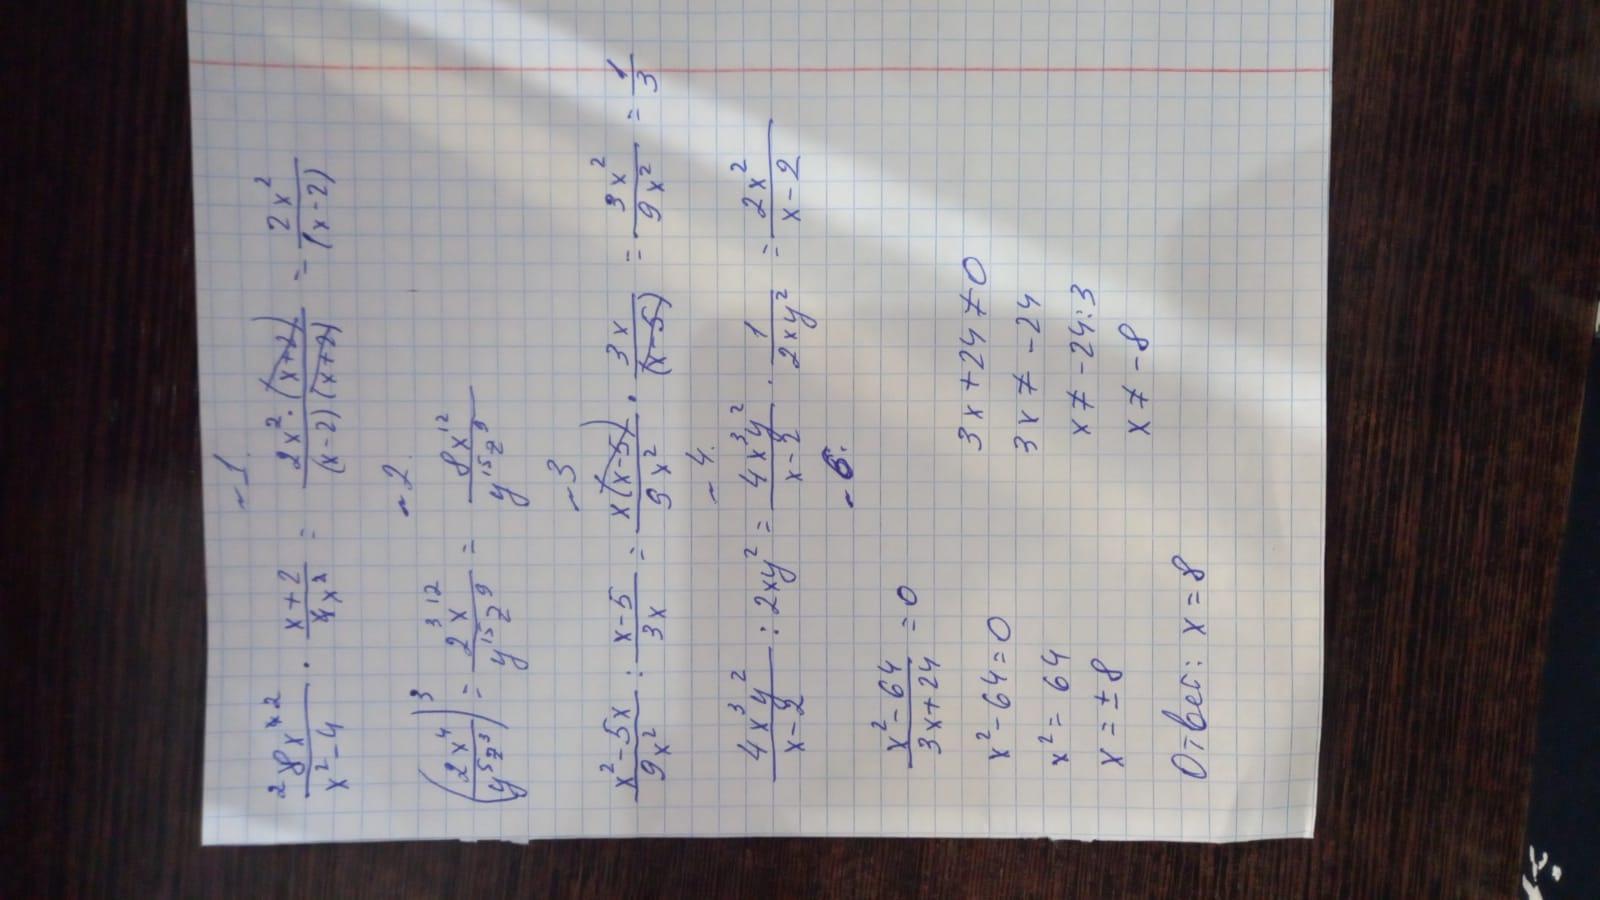 ~ 1.
2 8x^4 2 / x^2-4 · x+2 / 4x^2 = 2x^2·(x+2) / (x-2)(x+2) = 2x^2 / (x-2)
~ 2.
(2x^4 / y^5z^3)^3 = 2^3x^12 / y^15z^9 = 8x^12 / y^15z^9
~ 3
x^2-5x / 9x^2 : x-5 / 3x = x(x-5) / 9x^2 · 3x / (x-5) = 3x^2 / 9x^2 = 1/3
~ 4.
4x^3y^2 / x-2 : 2xy^2 = 4x^3y^2 / x-2 · 1 / 2xy^2 = 2x^2 / x-2
~ 6.
x^2-64 / 3x+24 = 0
3x+24≠0
x^2-64=0
3x≠-24
x^2=64
x≠-24:3
x=±8
x≠-8
Ответ: x=8